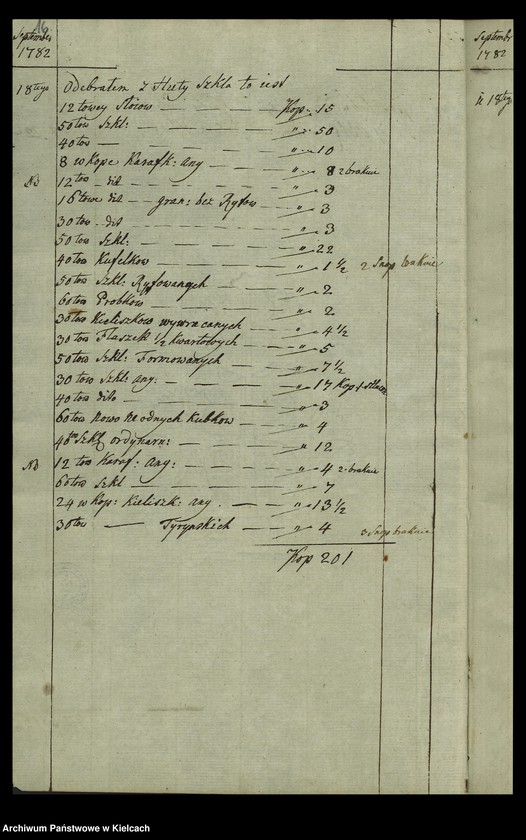 September
1782
18 tego Odebrałem z Huty Szkła to iest
12 towey Stoiow — Kop „ 15
50 tow Szkł: — „ 50
40 tow — „ 10
8 w Kope Karafk: Ang — „ 8 2 brakuie
NB 12 tow dit — „ 3
16 towe dit — gran: bez Ryſow „ 3
30 tow dit — „ 3
50 tow Szkł: — „ 22
40 tow Kufelkow — „ 1 1/2 2 Snop brakuie
50 tow Szkł: Ryſowanych — „ 2
60 tow Probkow — „ 2
30 tow Kieliszkow wywracanych — „ 4 1/2
30 tow Flaszek 1/2 Kwartowych — „ 5
50 tow Szkł: Formowanych — „ 7 1/2
30 tow Szkł: ang: — „ 17 Kop 1
40 tow dito — „ 3
60 tow nowo modnych Kubkow — „ 4
Szkł ordynarn: — „ 12
NB 12 tow Karaf: Ang: — „ 4 2 brakuie
60 tow Szkł — „ 7
24 w Kop: Kieliszk: ang. — „ 13 1/2
30 tow — Tyrynskich — „ 4 3 Snop brakuie
Kop 201
Septembr
1782
18 tego
Archiwum Państwowe w Kielcach